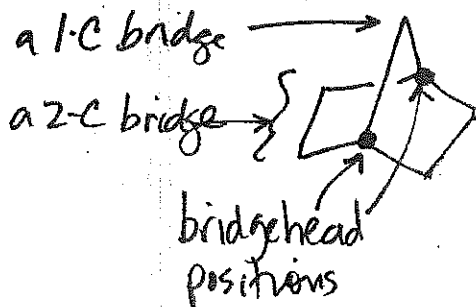 a 1-C bridge
a 2-C bridge
bridgehead
positions